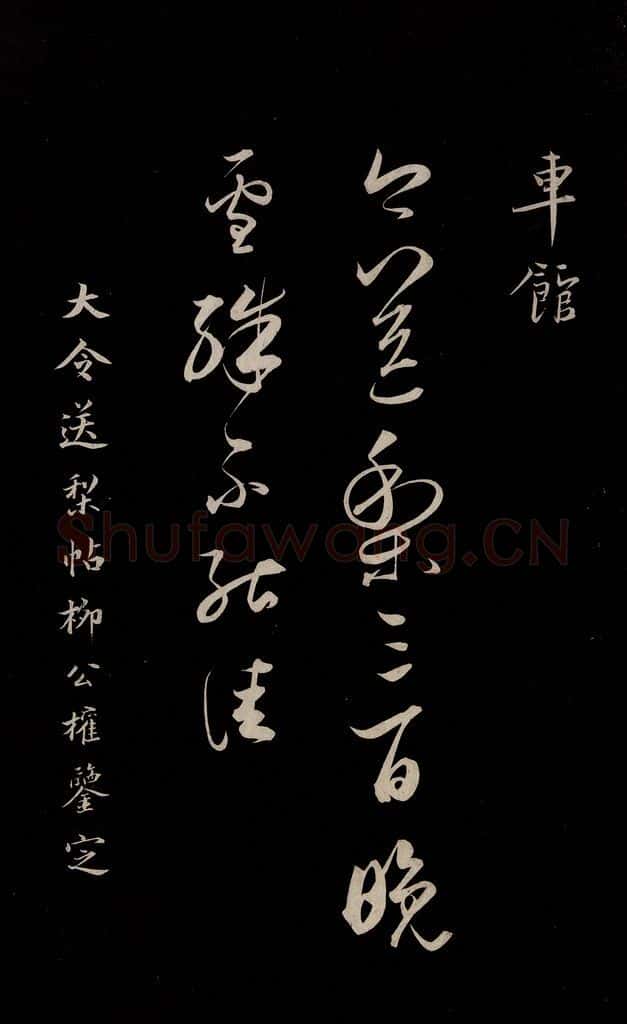 車館
今送梨三百晚
雪殊不能佳
大令送梨帖柳公權鑒定
Shufawang.CN